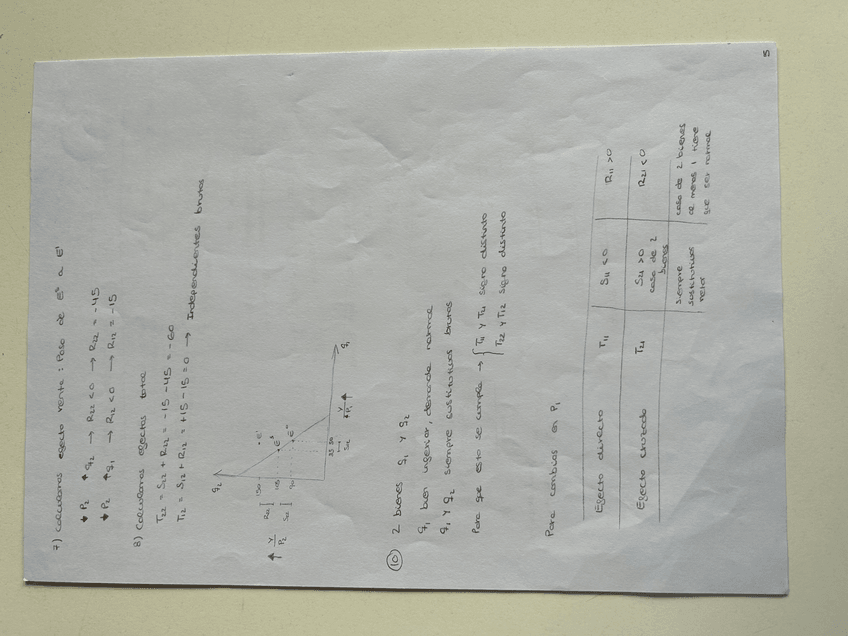 7) Calculamos efecto renta: Paso de e* a E'
↓ P2 ↑ q2 → R22 < 0 → R22 = -45
↓ P2 ↑ q1 → R12 < 0 → R12 = -15
8) Calculamos efectos total
T22 = S22 + R22 = -15 - 45 = -60
T12 = S12 + R12 = +15 - 15 = 0 → Independientes brutos
q2
150
E'
R22
E*
S22
90
E°
↑ Y/P2
35 50
S12
Y/P1
q1
10 2 bienes q1 y q2
q1 bien inferior, demanda normal
q1 y q2 siempre sustitutivos brutos
Para que esto se cumpla → { T11 y T21 signo distinto
T22 y T12 signo distinto
Para cambios en P1
Efecto directo T11 S11 < 0 R11 > 0
Efecto cruzado T21 S21 > 0 R21 < 0
caso de 2
bienes
siempre
sustitutivos
netos
caso de 2 bienes
al menos 1 tiene
que ser normal
5